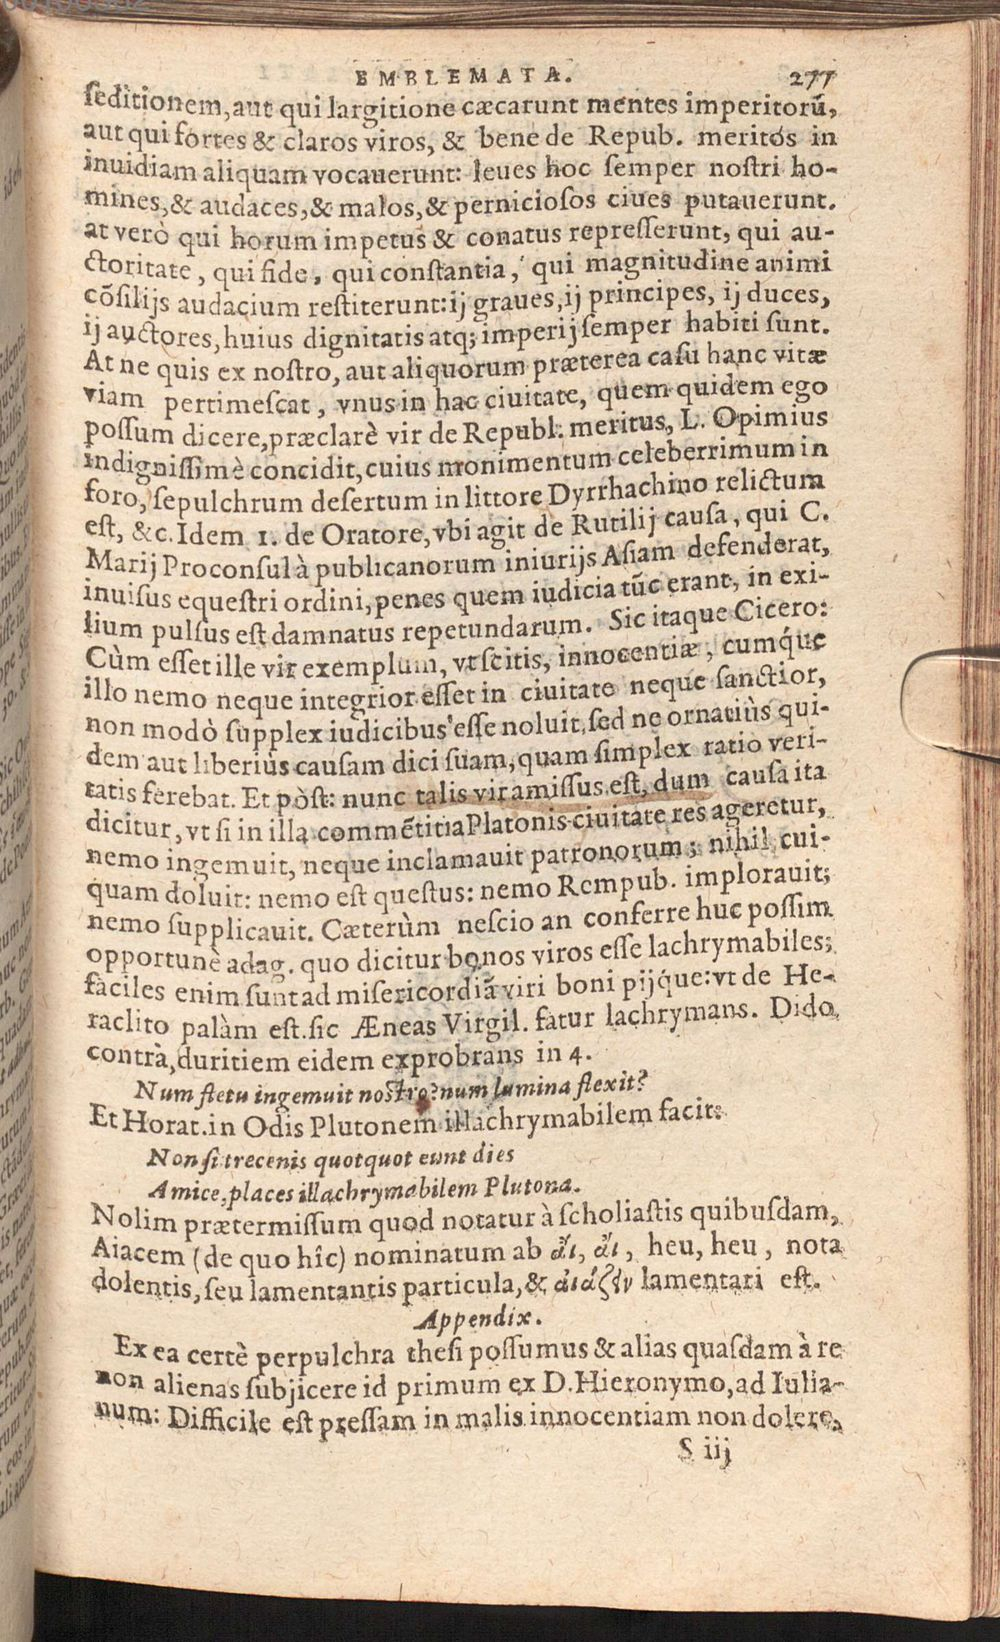 EMBLEMATA. 277
ſeditionem, aut qui largitione cæcarunt mentes imperitorũ,
aut qui fortes & claros viros, & bene de Repub. meritos in
inuidiam aliquam vocauerunt: leues hoc ſemper noſtri ho-
mines, & audaces, & malos, & pernicioſos ciues putauerunt.
at verò qui horum impetus & conatus repreſſerunt, qui au-
ctoritate, qui fide, qui conſtantia, qui magnitudine animi
cõſilijs audacium reſtiterunt: ij graues, ij principes, ij duces,
ij auctores, huius dignitatis atq; imperij ſemper habiti ſunt.
At ne quis ex noſtro, aut aliquorum præterea caſu hanc vitæ
viam pertimeſcat, vnus in hac ciuitate, quem quidem ego
poſſum dicere, præclarè vir de Republ. meritus, L. Opimius
indigniſſimè concidit, cuius monimentum celeberrimum in
foro, ſepulchrum deſertum in littore Dyrrhachino relictum
eſt, &c. Idem 1. de Oratore, vbi agit de Rutilij cauſa, qui C.
Marij Proconſul à publicanorum iniurijs Aſiam defenderat,
inuiſus equeſtri ordini, penes quem iudicia tũc erant, in exi-
lium pulſus eſt damnatus repetundarum. Sic itaque Cicero:
Cùm eſſet ille vir exemplum, vt ſcitis, innocentiæ, cumq́ue
illo nemo neque integrior eſſet in ciuitate neque ſanctior,
non modò ſupplex iudicibus eſſe noluit, ſed ne ornatiùs qui-
dem aut liberiùs cauſam dici ſuam, quam ſimplex ratio veri-
tatis ferebat. Et pòſt: nunc talis vir amiſſus eſt, dum cauſa ita
dicitur, vt ſi in illa commẽtitia Platonis ciuitate res ageretur,
nemo ingemuit, neque inclamauit patronorum; nihil cui-
quam doluit: nemo eſt queſtus: nemo Rempub. implorauit;
nemo ſupplicauit. Cæterùm neſcio an conferre huc poſſim
opportunè adag. quo dicitur bonos viros eſſe lachrymabiles;
faciles enim ſunt ad miſericordiã viri boni pijq́ue: vt de He-
raclito palàm eſt. ſic Æneas Virgil. fatur lachrymans. Dido
contrà, duritiem eidem exprobrans in 4.
Num fletu ingemuit noſtro? num lumina flexit?
Et Horat. in Odis Plutonem illachrymabilem facit:
Non ſi trecenis quotquot eunt dies
Amice, places illachrymabilem Plutona.
Nolim prætermiſſum quod notatur à ſcholiaſtis quibuſdam,
Aiacem (de quo hîc) nominatum ab ἂι, ἂι, heu, heu, nota
dolentis, ſeu lamentantis particula, & ἀιάζειν lamentari eſt.
Appendix.
Ex ea certè perpulchra theſi poſſumus & alias quaſdam à re
non alienas ſubjicere id primum ex D. Hieronymo, ad Iulia-
num: Difficile eſt preſſam in malis innocentiam non dolere,
S iij